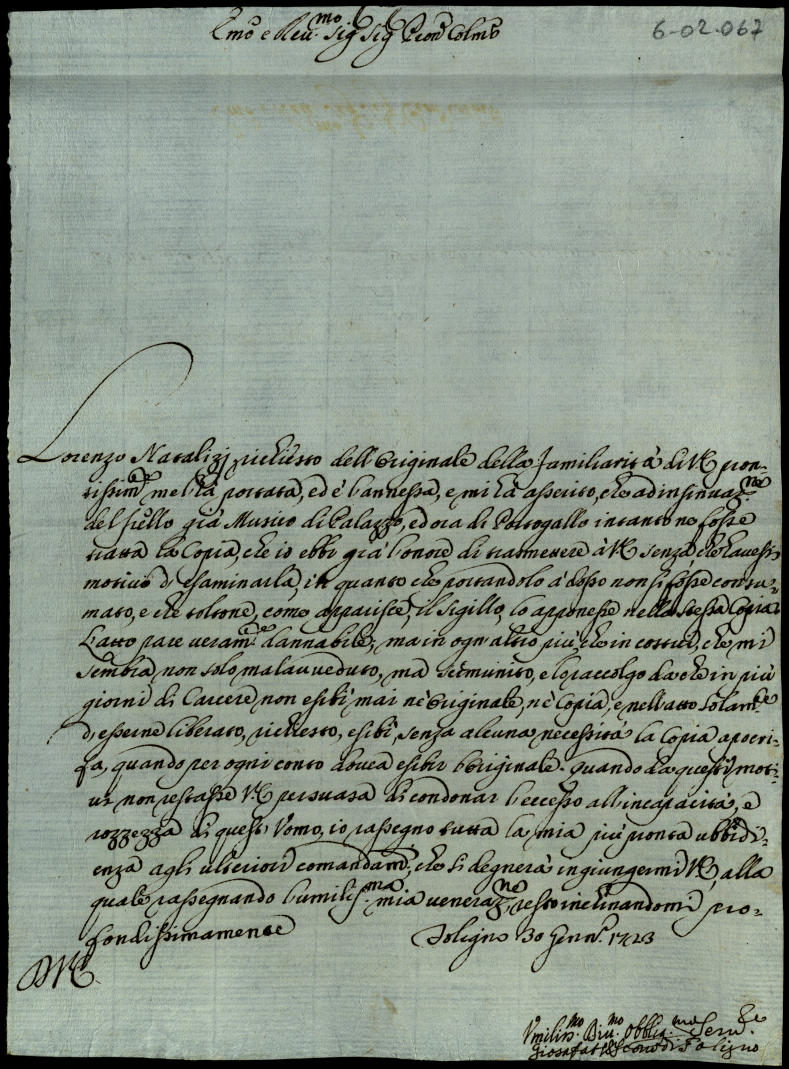 Emo e Reu.mo Sig. Sig. Pron Colmo
6-02.067
Lorenzo Natalizj richiesto dell'Originale della familiarità di VE pron-
tissimte me l'hà portata, ed è l'annessa, e mi hà asserito, che ad insinuaz.ne
del già Musico di Palazzo, ed ora di Portogallo intanto ne fosse
tratta la Copia, che io ebbi già l'onore di trasmettere à VE senza che havessi
motivo di esaminarla, in quanto che portandolo à dosso non si fosse consu-
mato, e che toltone, come apparisce, il sigillo, lo apponesse nella stessa Copia.
L'atto pare veramte dannabile, ma in ogn'altro più, che in costui, che mi
sembra, non solo mal'avveduto, mà scimunito, e lo raccolgo da che in più
giorni di Carcere non esibì mai nè Originale, nè Copia, e nell'atto solam.te
d'esserne liberato, richiesto, esibì, senza alcuna necessità la Copia apocri-
fa, quando per ogni conto dovea esibir l'Originale. Quando da questi moti-
vi non restasse VE persuasa di condonar l'eccesso all'incapacità, e
rozzezza di quest'Vomo, io rassegno tutta la mia più pronta ubbidi-
enza agli ulteriori comandamti, che si degnerà ingiungermi VE, alla
quale rassegnando l'umiliss.ma mia veneraz.ne, resto inclinandomi pro-
fondissimamente
Foligno 30 Genn.o 1723
DVE
Vmiliss.mo Diu.mo Obblig.mo Seru.re
Giosafat Vescovo di Foligno